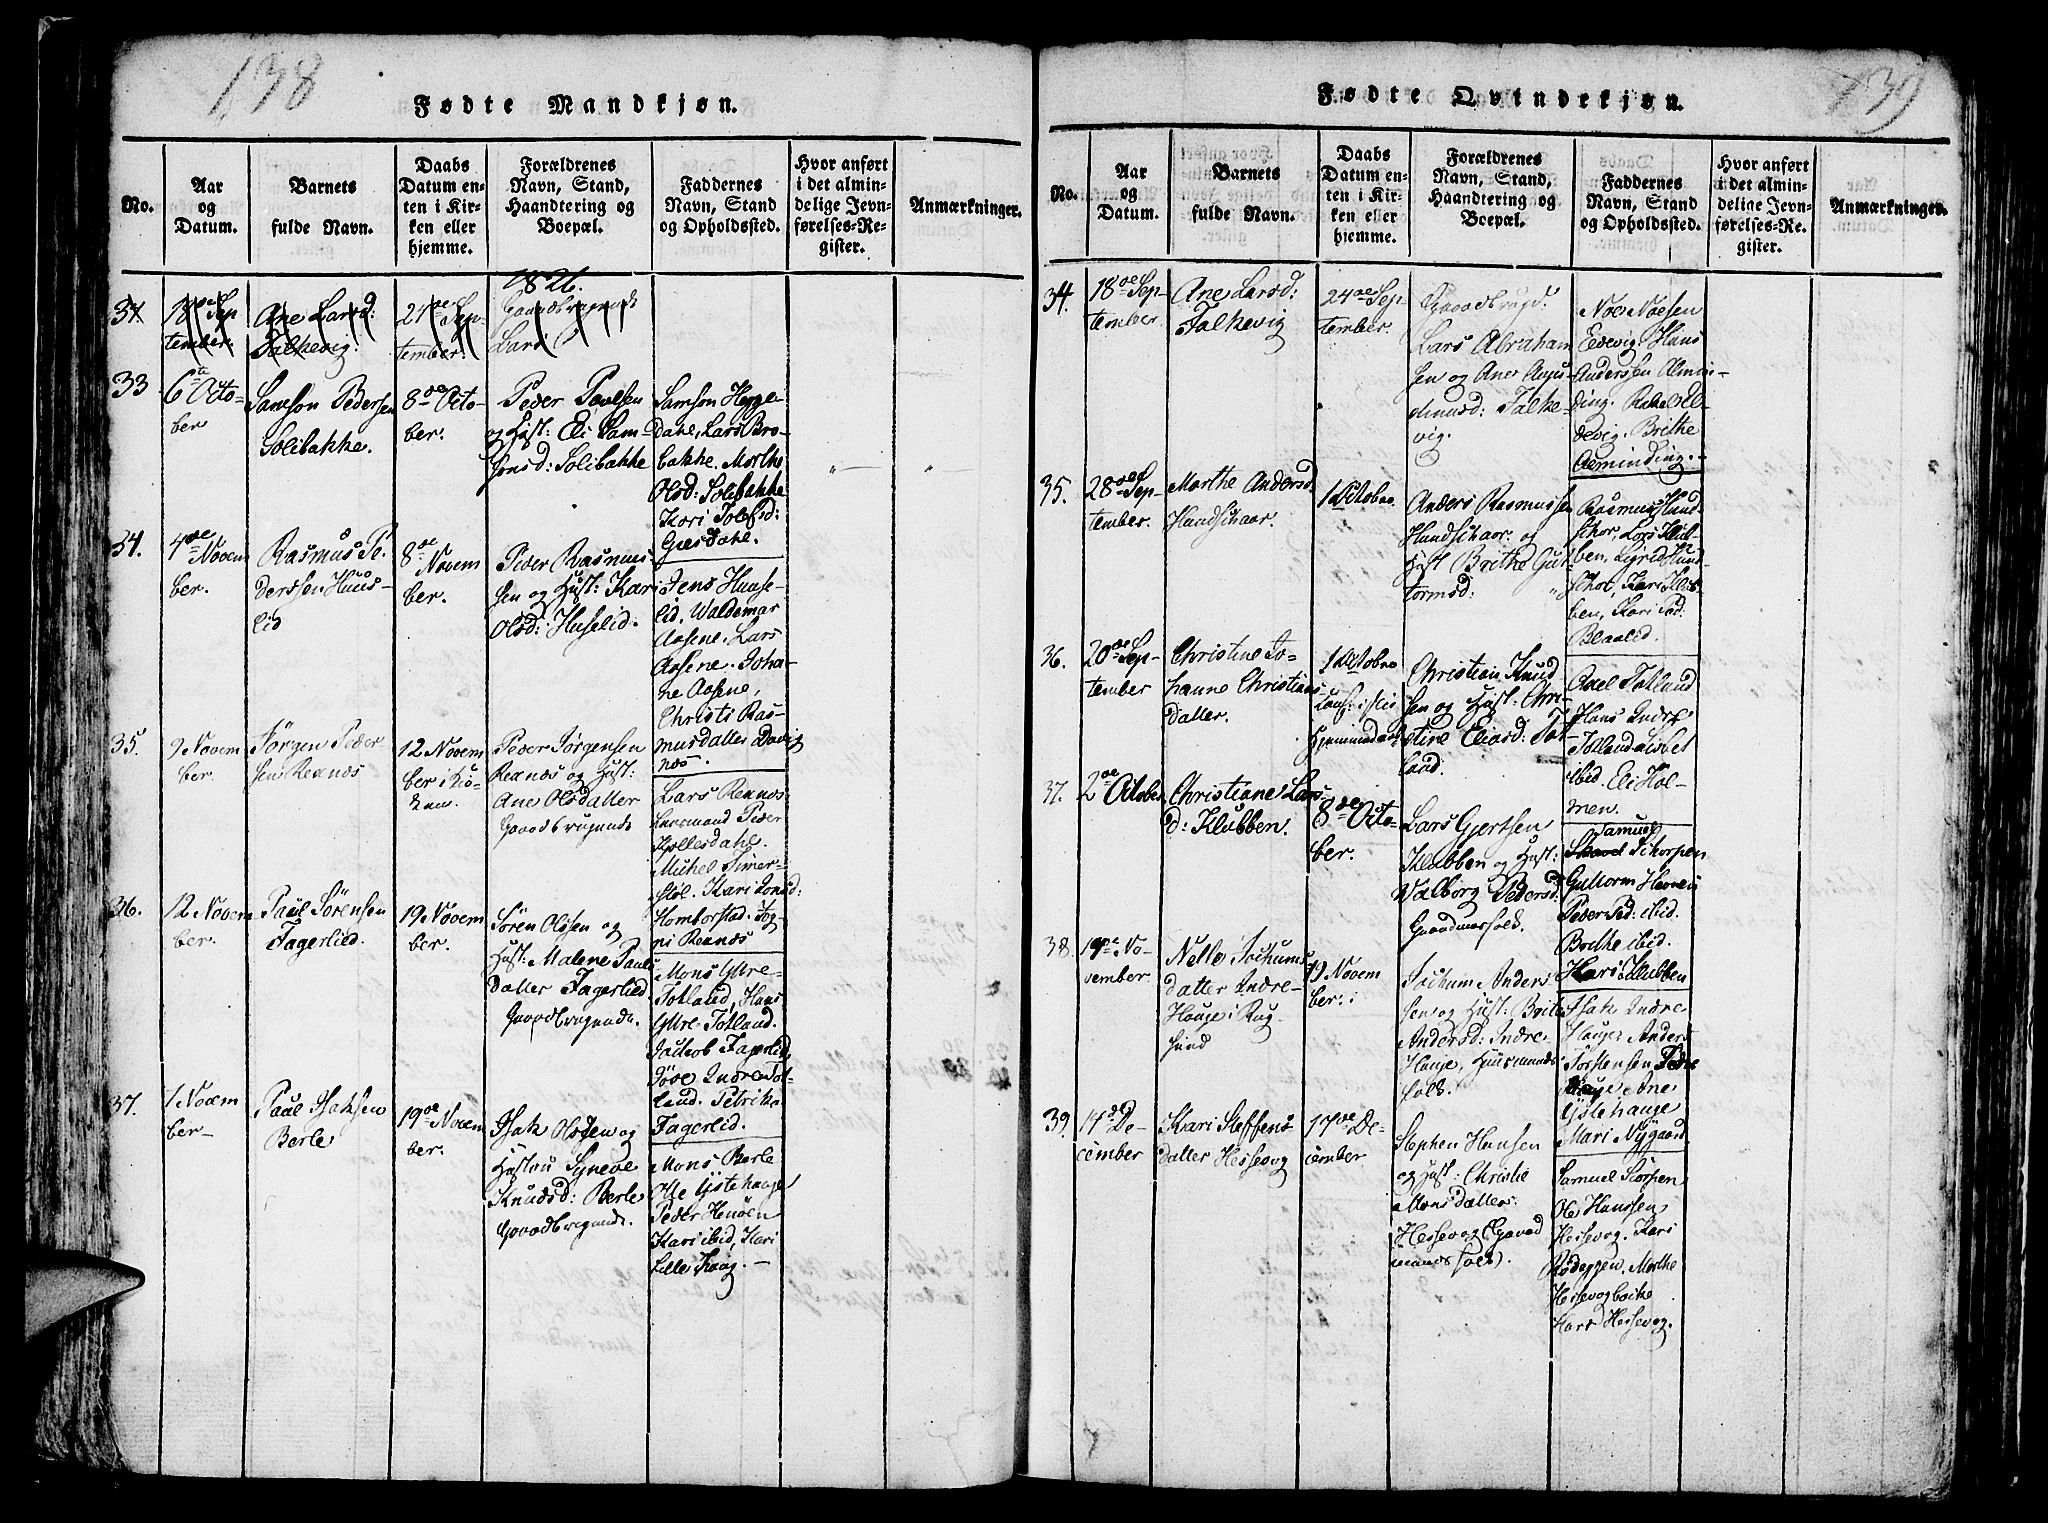 138
Fødte Mandkjøn.
No.
Aar
og
Datum.
Barnets
fulde Navn.
Daabs
Datum en-
ten i Kir-
ken eller
hjemme.
Forældrenes
Navn, Stand,
Haandtering og
Boepæl.
Faddernes
Navn, Stand
og Opholdssted.
Hvor anført
i det almin-
delige Jevn-
førelses-Re-
gister.
Anmærkninger.
1826.
34.
18de Sep
tember.
Ane Larsd:
Falkevig.
24de Sep-
tember.
Gaardbrugende
Lars
33
6te Octo-
ber
Samson Pedersen
Solibakke.
8de Octo-
ber.
Peder Povelsen
og Hust: Eli Sam-
sonsd: Solibakke
Samson Hegge-
Dahl, Lars Bro-
bakke. Marthe
Olsd: Solibakke
Kari Tolefsd:
Giesdahl.
34.
4de Novem
ber.
Rasmus Pe-
derssen Huus-
lid
8de Novem
ber.
Peder Rasmus-
sen og Hust: Kari
Olsd: Huselid.
Jens Huuse-
lid. Waldemar
Aasene. Lars
Aasene. Joha-
ne Aasene,
Christi Ras-
musdatter Davig
næs.
35.
9 Novem
ber.
Jørgen Peder-
sen Rexnæs
12 Novem
ber i Kir-
ken.
Peder Jørgensen
Rexnæs og Hust:
Ane Olsdatter
Gaardbrugende
Lars Rexnæs
Peder
Hollesdahl.
Michel Timer-
støl. Kari Jonsd:
Homborstad.
Rexnæs
36.
12 Novem
ber.
Paul Sørensen
Fagerlied.
19 Novem
ber.
Søren Olssen og
Hust: Malene Pauls
datter Fagerlied
Gaardbrugende.
Mons Yttre-
Totland, Hans
Yttre-Totland.
Jacob Fagerlied
Indre Tot-
land. Petrika
Fagerlied.
37.
7 Novem
ber.
Paul Isaksen
Berle
19de Novem
ber.
Isak Olssen og
Hustru Synneve
Knudsd: Berle
Gaardbrugende.
Mons Berle
Olle Ystehauge
Peder Henøen
Kari ibid, Kari
Lille Kaag.
139
Fødte Qvindekjøn.
No.
Aar
og
Datum.
Barnets
fulde Navn.
Daabs
Datum en-
ten i Kir-
ken eller
hjemme.
Forældrenes
Navn, Stand,
Haandtering og
Boepæl.
Faddernes
Navn, Stand
og Opholdssted.
Hvor anført
i det almin-
delige Jevn-
førelses-Re-
gister.
Anmærkninger.
34.
18de Sep-
tember
Ane Larsd:
Falkevig
24de Sep
tember.
Gaardbrugd.
Lars Abraham
sen og Ane
Falke-
vig.
Noe Noesen
Eldevig. Hans
Anderssen Almin-
ding. Rakel El-
devig. Brithe
Alminding.
35.
28de Sep-
tember.
Marthe Andersd:
Hundschaar.
1 October
Anders Rasmussen
Hundschaar og
Hust Brithe Gut-
tormsd:
Rasmus Hund-
schor, Lars Klub-
ben, Sigrid Hund-
schor, Kari Klub-
ben, Kari Ped:
Blaalid.
36.
20de Sep-
tember
Christine Jo-
hanne Christians-
datter.
1 October
Christian Knud
sen og Hust: Chri-
stine Eliasd: Tot-
land.
Axel Totland
Hans Indre
Totland Lisbet
ibid. Eli Hol-
men.
37.
2de October
Christiane Lars-
d: Klubben.
8de Octo-
ber.
Lars Gjertsen
Klubben og Hust:
Valborg Pedersd:
Gaardmansfolk.
Samuel
Schorpen
Guttorm Hennøe
Peder Ped: ibid.
Brithe ibid.
Kari Klubben
38
14de No-
vember.
Nelle Jochums
datter Indre-
Hauge i Rug-
sund
19 Novem
ber.
Jochum Anders
sen og Hust: Brite
Andersd: Indre-
Hauge, Huusmands-
folk.
Isak Indre
Hauge Anders
Torstensen Indre
Hauge Ane
Ystehauge
Mari Nygaard
39.
14de De-
cember
Kari Steffens
datter Hessevog
17de De-
cember
Stephen Hansen
og Hust: Christie
Monsdatter
Hessevog (Gaard
mandsfolk).
Samuel Scorpen
Ole Hanssen
Hessevog. Kari
Rødeggen. Marthe
Hessevog
Hans Hessevog.